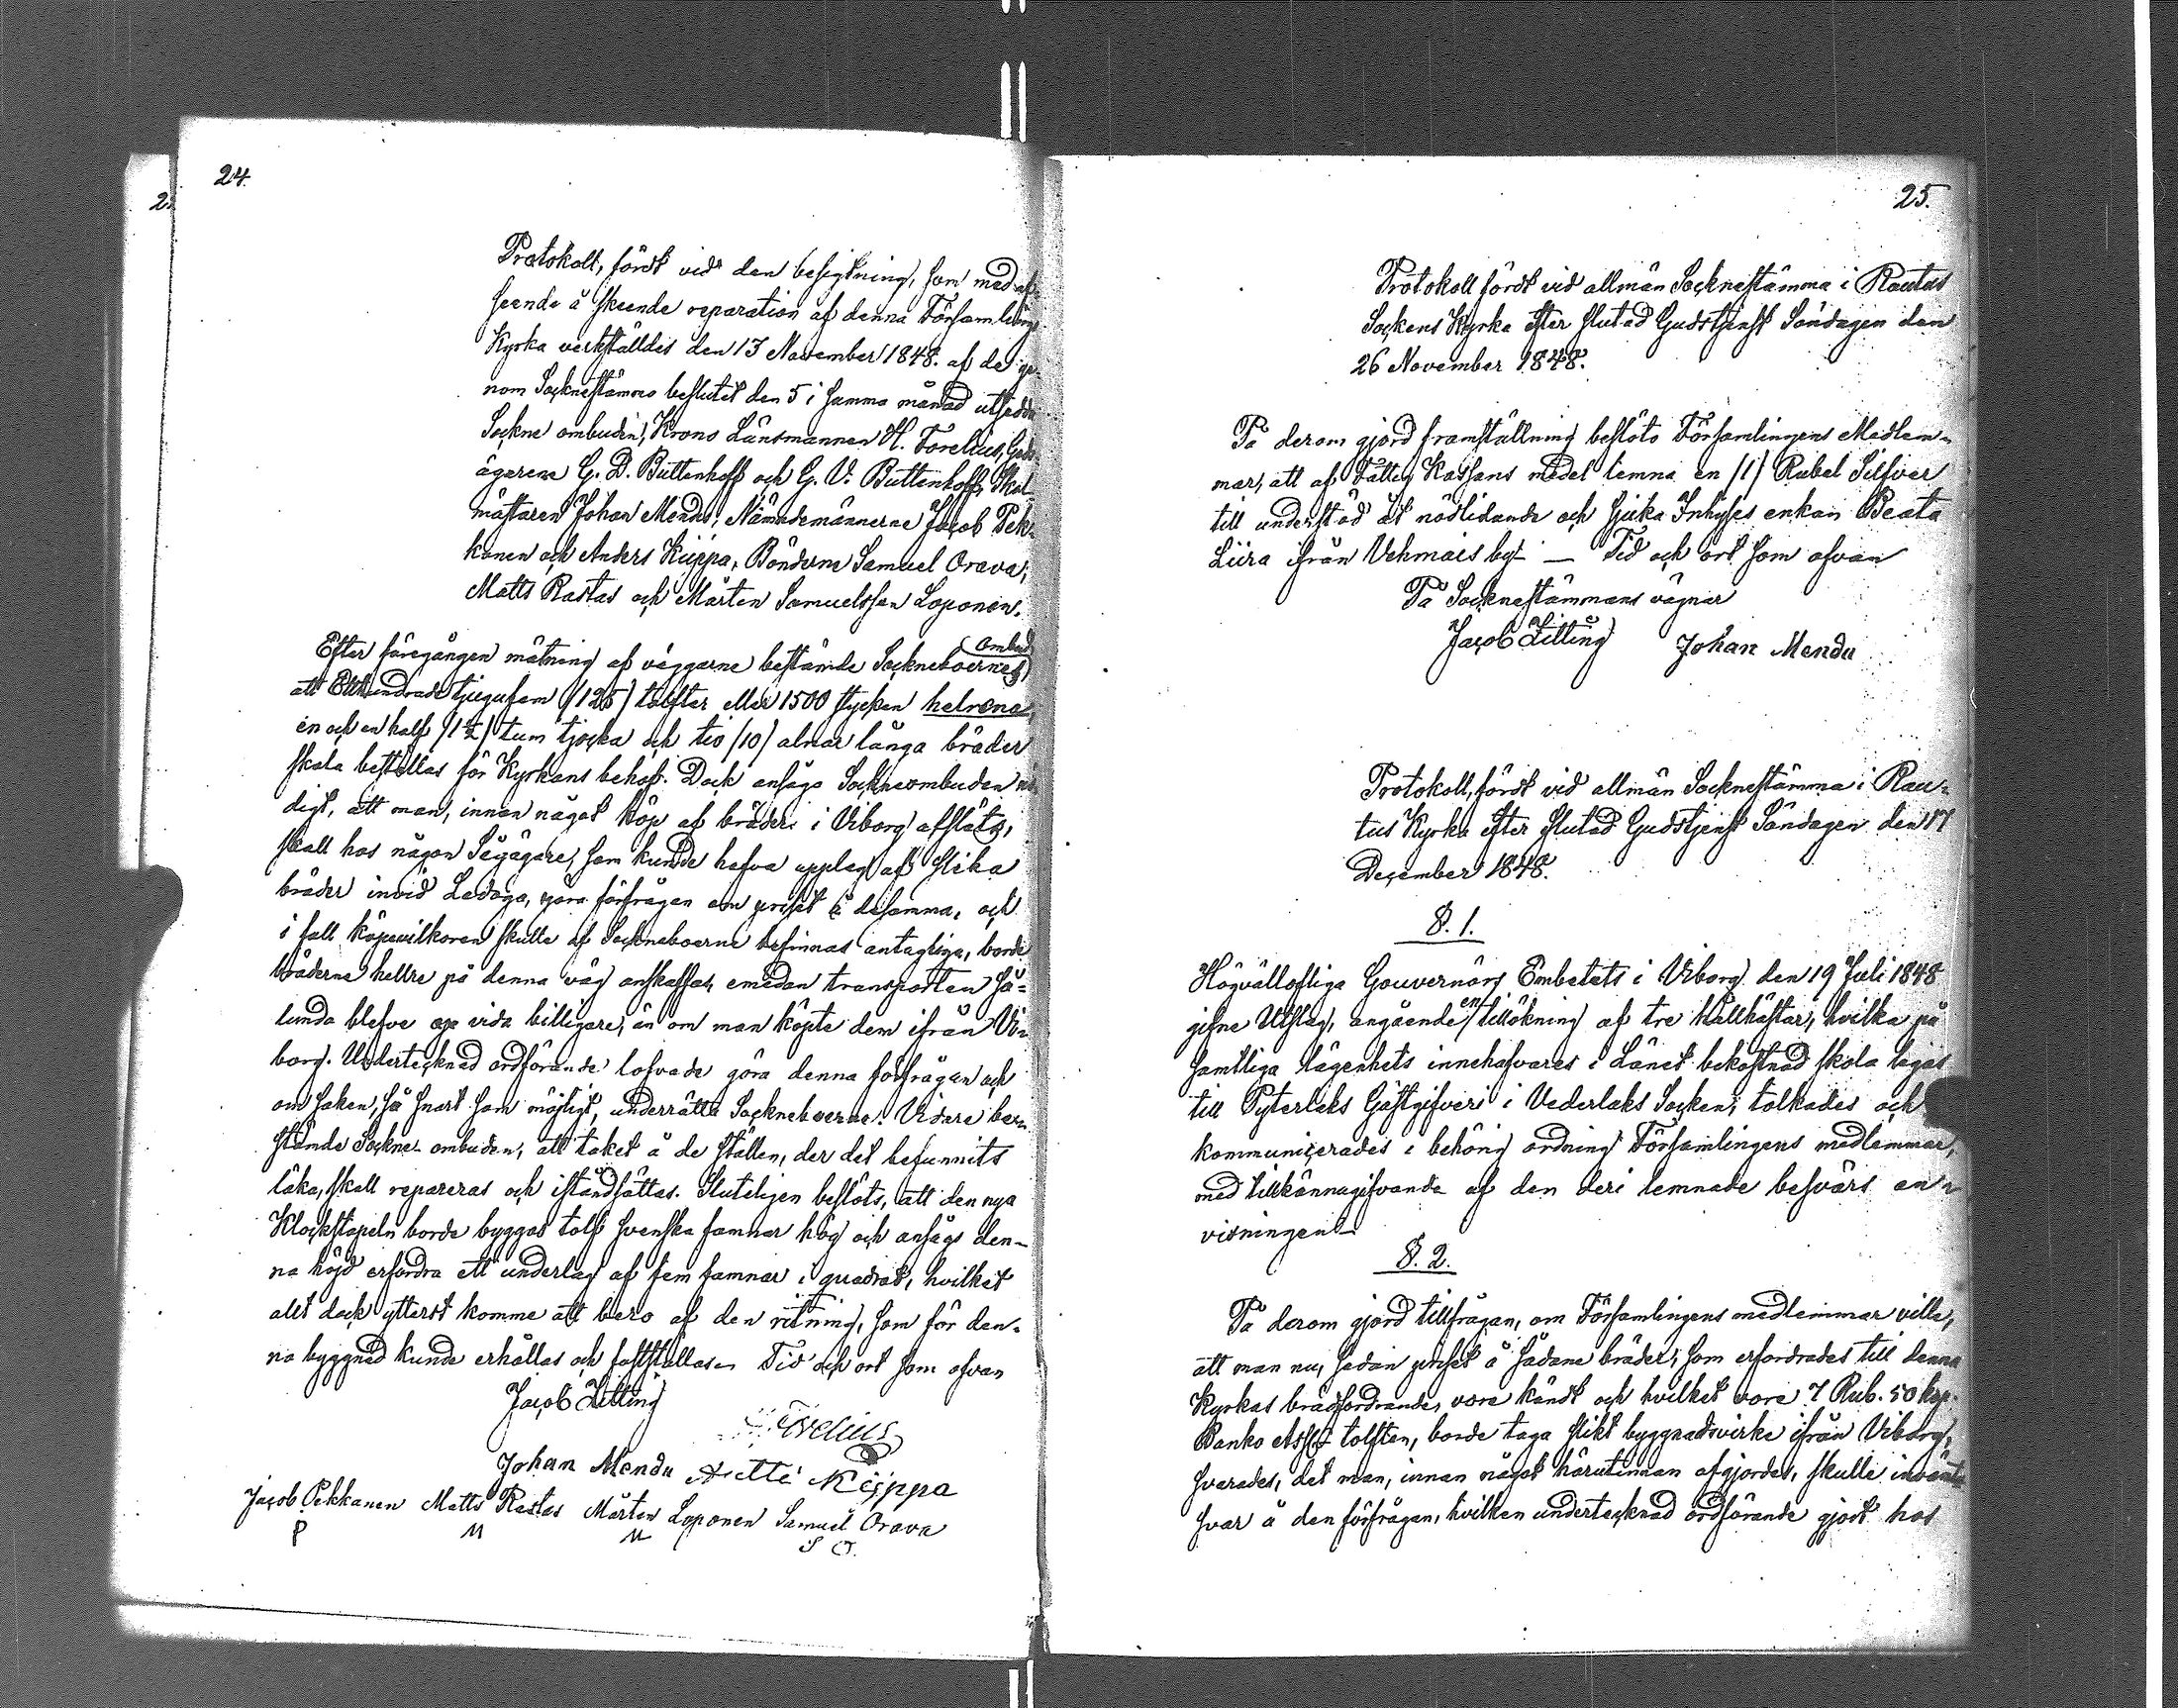 24.
Protokoll, fördt vid den besigtning, som med af-
seende å skeende reparation af denna Församlings
Kyrka verkställdes den 13 November 1848. af de ge-
nom Socknestämmo beslutet den 5 i samma månad utsedde
Sockne ombuden, Krono Länsmannen H. Forelius, Gods-
ägarene G. D. Buttenhoff och G. V. Buttenhoff, Skol-
mästaren Johan Mendu, Nämndemännerne Jacob Pek-
kanen och Anders Kiippa, Bönderne Samuel Orava,
Matts Rastas och Mårten Samuelsson Loponen.
Efter föregången mätning af väggarne bestämde Sockneboernes ombud
att Etthundrade tjugufem /125/ tolfter eller 1500 stycken helrena,
en och en half /1½/ tum tjocka och tio /10/ alnar långa bräder
skola beställas för Kyrkans behof. Dock ansågo Sockneombuden nö-
digt, att man, innan något köp af bräder i Viborg afslöts,
skall hos någon Sågägare, som kunde hafva upplag af slika
bräder invid Ladoga, göra förfrågan om priset å desamma, och
i fall köpevilkoren skulle af Sockneboerne befinnas antagliga, borde
bräderne hellre på denna väg anskaffas, emedan transporten så-
lunda blefve vida billigare, än om man köpte dem ifrån Vi-
borg. Undertecknad ordförande lofvade göra denna förfrågan och
om saken, så snart som möjligt, underrätta Sockneboerne. Vidare be-
stämde Sockne-ombuden, att taket å de ställen, der det befunnits
läka, skall repareras och iståndsättas. Sluteligen beslöts, att den nya
Klockstapeln borde byggas tolf svenska famnar hög och ansågs den-
na höjd erfordra ett underlag af fem famnar i quadrat, hvilket
allt dock ytterst komme att bero af den ritning, som för den-
na byggnad kunde erhållas och fastställas. Tid och ort som ofvan
Jacob Zitting
Forelius
Johan Mendu Antti Kiippa
Jacob Pekkanen Matts Rastas Mårten Loponen Samuel Orava
P M M S O.
25.
Protokoll fördt vid allmän Socknestämma i Rautus
Sockens Kyrka efter slutad Gudstjenst Söndagen den
26 November 1848.
På derom gjord framställning beslöto Församlingens Medlem-
mar, att af Fattig Kassans medel lemna en /1/ Rubel Silfver
till understöd åt nödlidande och sjuka Inhyses enkan Beata
Liira ifrån Vehmais by. — Tid och ort som ofvan
På Socknestämmans vägnar
Jacob Zitting Johan Mendu
Protokoll, fördt vid allmän Socknestämma i Rau-
tus Kyrka efter slutad Gudstjenst Söndagen den 17
December 1848.
§. 1.
Högvällofliga Gouvernörs Embetets i Viborg den 19 Juli 1848
gifne Utslag, angående en tillökning af tre hållhästar, hvilka på
samtliga lägenhets innehafvares i Länet bekostnad skola legas
till Pyterlaks Gästgifveri i Vederlaks Socken, tolkades och
kommunicerades i behörig ordning Församlingens medlemmar,
med tillkännagifvande af den deri lemnade besvärs an-
visningen.—
§. 2.
På derom gjord tillfrågan, om Församlingens medlemmar ville,
att man nu, sedan priset å sådane bräder, som erfordrades till denna
Kyrkas brädfordrande, vore kändt och hvilket vore 7 Rub. 50 kop.
Banko Ass. tolften, borde taga slikt byggnadsvirke ifrån Viborg,
svarades, det man, innan något härutinnan afgjordes, skulle invänta
svar å den förfrågan, hvilken undertecknad ordförande gjort hos